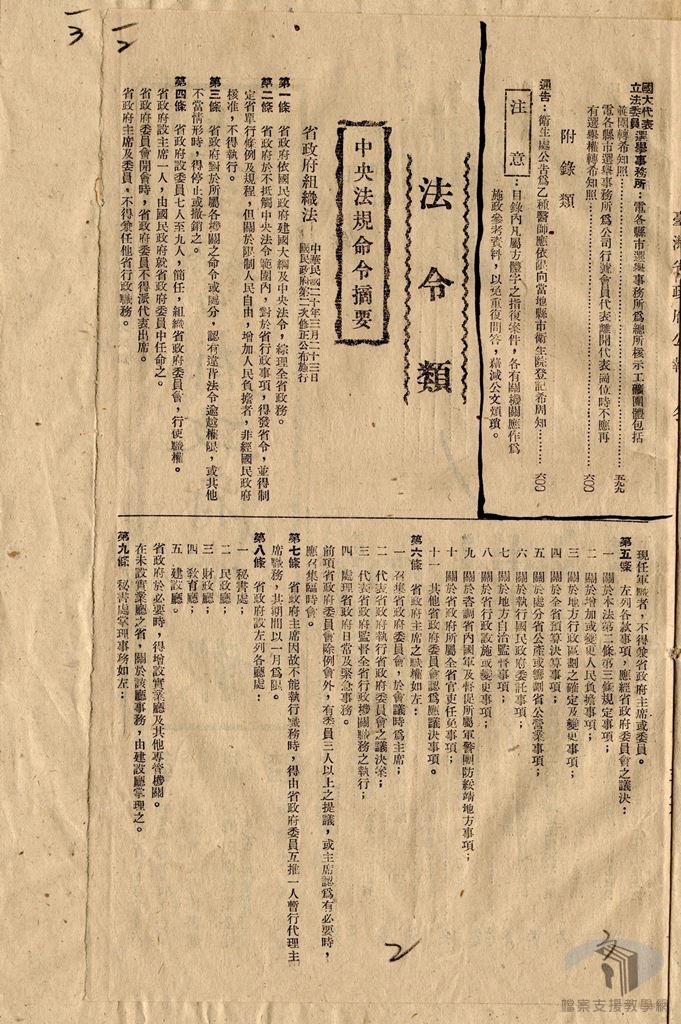 國大代表
立法委員選舉事務所：電各縣市選舉事務所爲總所核示工礦團體包括
電各縣市選舉事務所爲公司行號會員代表離開代表崗位時不應再
有選舉權轉希知照
五九九
六〇〇
附錄類
通告：衛生處公告爲乙種醫師應依限向當地縣市衛生院登記希周知
六〇〇
注意
：目錄內凡屬方體字之指復案件，各有關機關應作爲
施政參考資料，以免重復問答，藉減公文煩瑣。
法令類
中央法規命令摘要
省政府組織法
中華民國二十年三月二十三日
國民政府第二次修正公布施行
第一條　省政府依國民政府建國大綱及中央法令，綜理全省政務。
第二條　省政府於不抵觸中央法令範圍內，對於省行政事項，得發省令，並得制
定省單行條例及規程，但關於限制人民自由，增加人民負擔者，非經國民政府
核准，不得執行。
第三條　省政府對於所屬各機關之命令或處分，認有違背法令逾越權限，或其他
不當情形時，得停止或撤銷之。
第四條　省政府設委員七人至九人，簡任，組織省政府委員會，行使職權。
省政府設主席一人，由國民政府就省政府委員中任命之。
省政府委員會開會時，省政府委員不得派代表出席。
省政府主席及委員，不得兼任他省行政職務。
現任軍職者，不得兼省政府主席或委員。
第五條　左列各款事項，應經省政府委員會之議決：
一　關於本法第二條第三條規定事項；
二　關於增加或變更人民負擔事項；
三　關於地方行政區劃之確定及變更事項；
四　關於全省預算決算事項；
五　關於處分省公產或籌劃省公營業事項；
六　關於執行國民政府委託事項；
七　關於地方自治監督事項；
八　關於省行政設施或變更事項；
九　關於咨調省內國軍及督促所屬軍警團防綏靖地方事項；
十　關於省政府所屬全省官吏任免事項；
十一　其他省政府委員會認爲應議決事項。
第六條　省政府主席之職權如左：
一　召集省政府委員會，於會議時爲主席；
二　代表省政府執行省政府委員會之議決案；
三　代表省政府監督全省行政機關職務之執行；
四　處理省政府日常及緊急事務。
前項省政府委員會除例會外，有委員三人以上之提議，或主席認爲有必要時，
應召集臨時會。
第七條　省政府主席因故不能執行職務時，得由省政府委員互推一人暫行代理主
席職務，其期間以一月爲限。
第八條　省政府設左列各廳處：
一　秘書處；
二　民政廳；
三　財政廳；
四　敎育廳；
五　建設廳。
省政府於必要時，得增設實業廳及其他專管機關。
在未設實業廳之省，關於該廳事務，由建設廳掌理之。
第九條　秘書處掌理事務如左：
檔案支援教學網